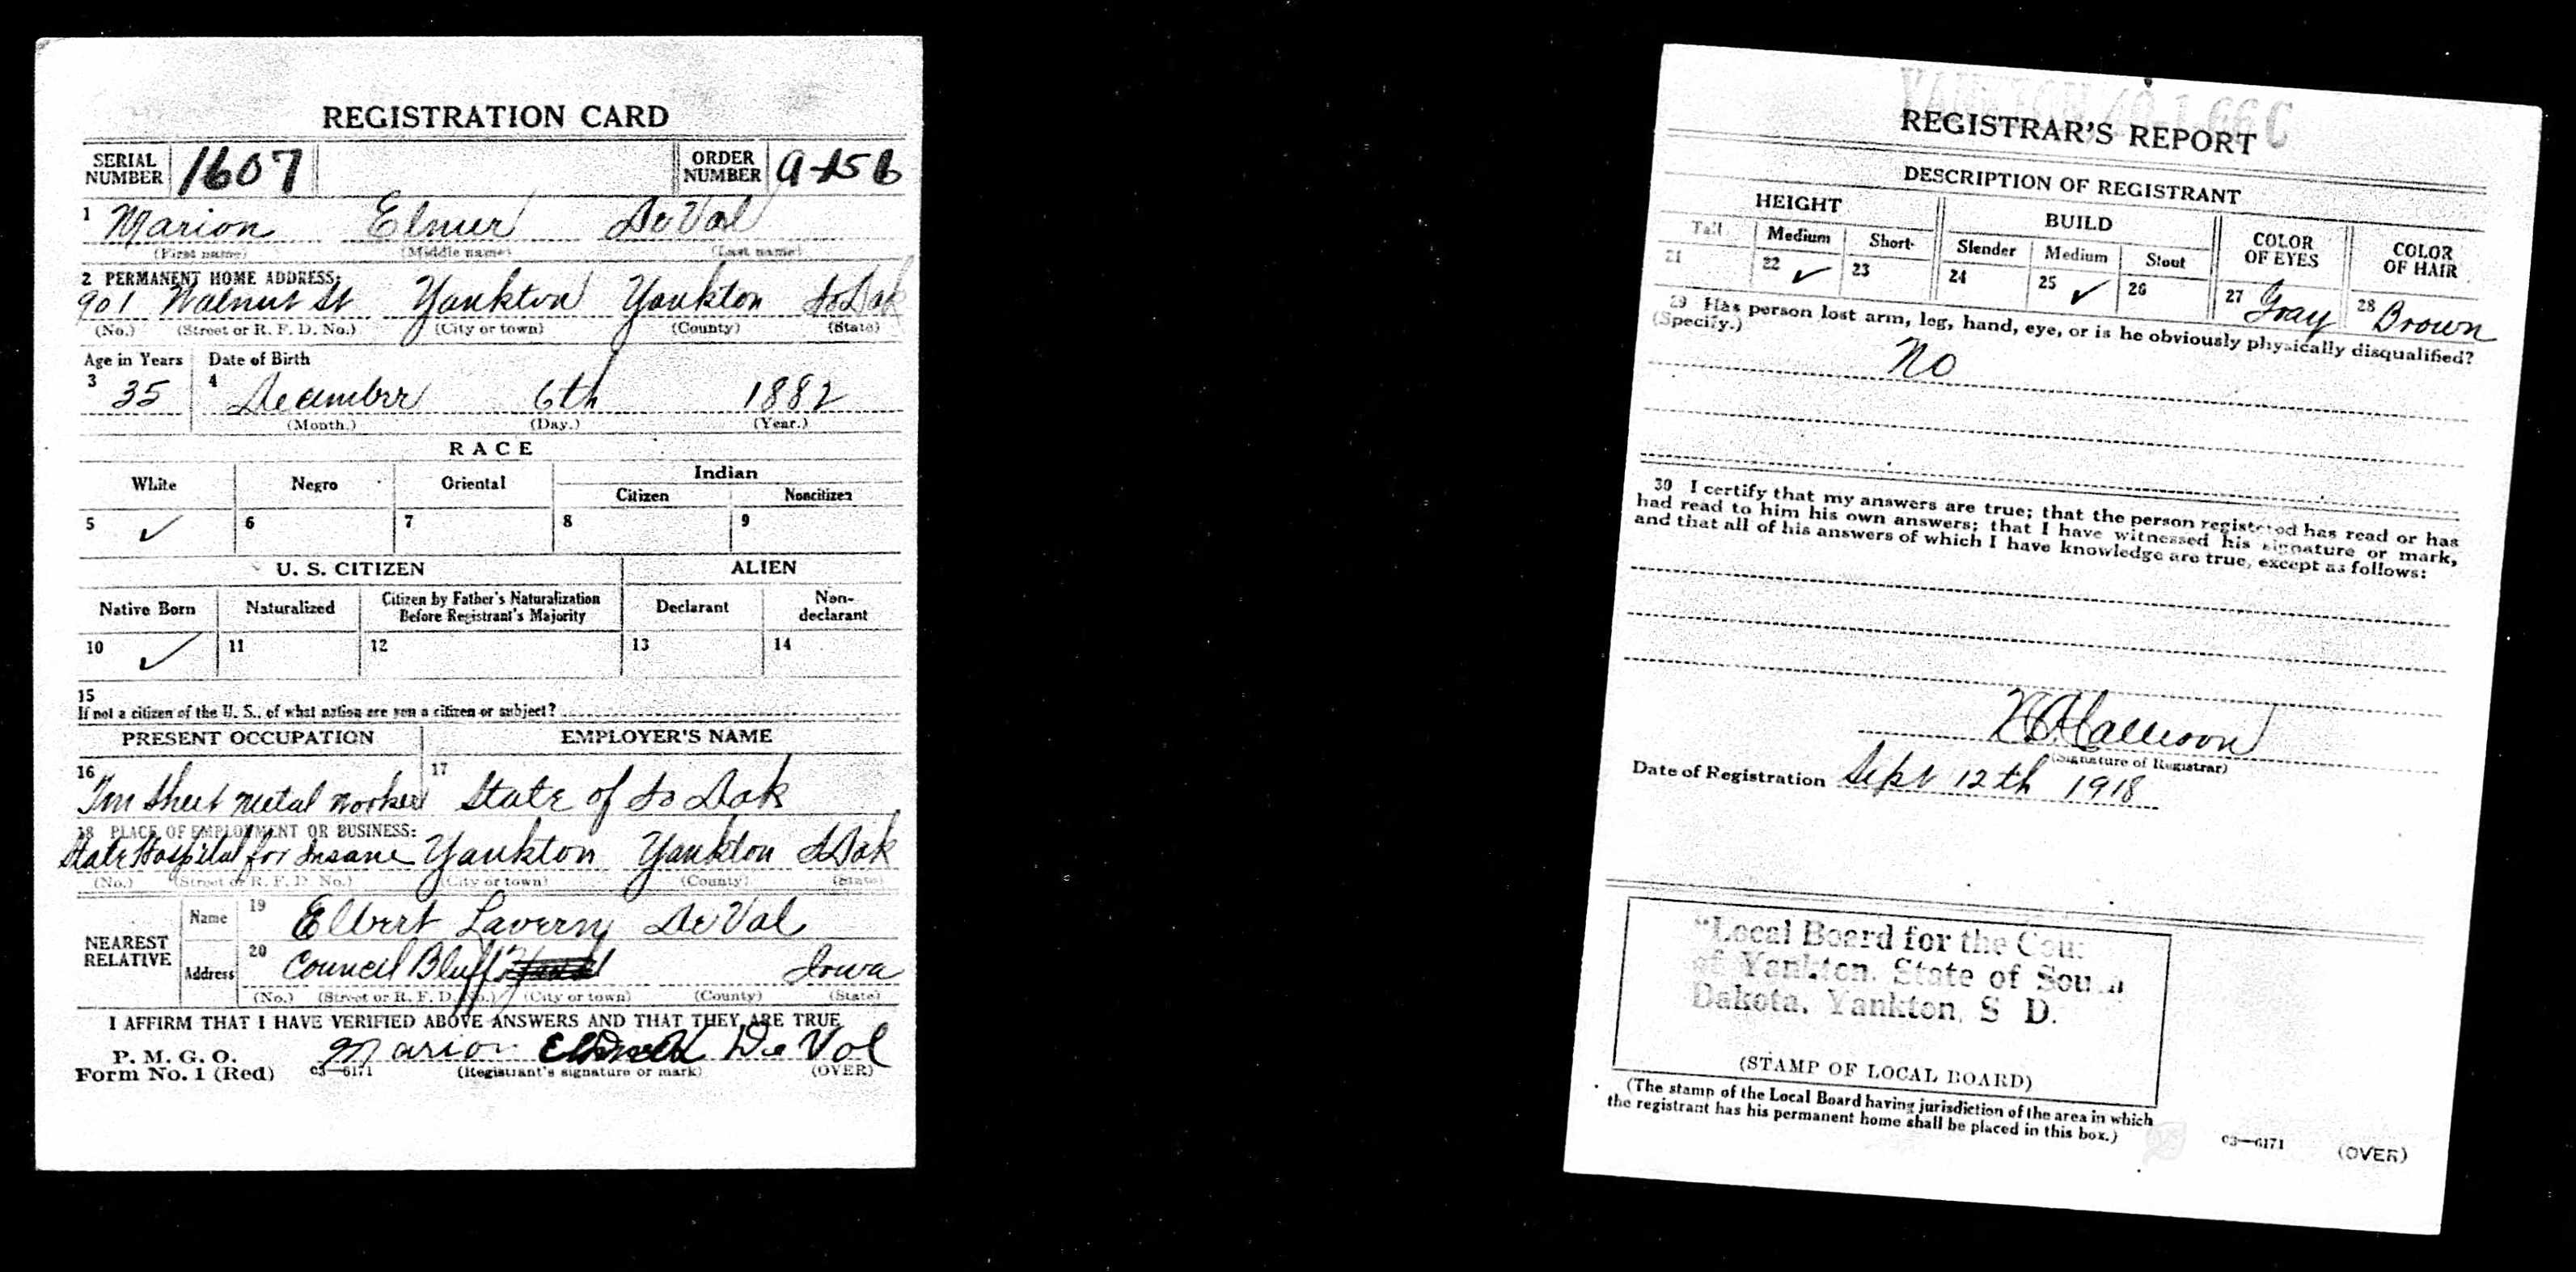 REGISTRATION CARD
SERIAL NUMBER 1607 ORDER NUMBER
1 Marion Elmer DeVal
(First name) (Middle name) (Last name)
2 PERMANENT HOME ADDRESS:
901 Walnut St Yankton Yankton So Dak
(No.) (Street or R. F. D. No.) (City or town) (County) (State)
Age in Years Date of Birth
3 35 4 December 6th 1882
(Month.) (Day.) (Year.)
RACE
White Negro Oriental Indian
Citizen Noncitizen
5 ✓ 6 7 8 9
U. S. CITIZEN ALIEN
Native Born Naturalized Citizen by Father's Naturalization Before Registrant's Majority Declarant Non-declarant
10 ✓ 11 12 13 14
15
If not a citizen of the U. S., of what nation are you a citizen or subject?
PRESENT OCCUPATION EMPLOYER'S NAME
16 Tin Sheet metal worker 17 State of So Dak
18 PLACE OF EMPLOYMENT OR BUSINESS:
State Hospital for Insane Yankton Yankton S Dak
(No.) (Street or R. F. D. No.) (City or town) (County) (State)
NEAREST RELATIVE Name 19 Elbert Laverny DeVal
Address 20 Council Bluffs Iowa
(No.) (Street or R. F. D. No.) (City or town) (County) (State)
I AFFIRM THAT I HAVE VERIFIED ABOVE ANSWERS AND THAT THEY ARE TRUE
P. M. G. O.
Form No. 1 (Red) c3—6171 Marion De Vol
(Registrant's signature or mark) (OVER)
REGISTRAR'S REPORT
DESCRIPTION OF REGISTRANT
HEIGHT BUILD COLOR OF EYES COLOR OF HAIR
Tall Medium Short Slender Medium Stout
21 22 ✓ 23 24 25 ✓ 26 27 Gray 28 Brown
29 Has person lost arm, leg, hand, eye, or is he obviously physically disqualified?
(Specify.)
No
30 I certify that my answers are true; that the person registered has read or has
had read to him his own answers; that I have witnessed his signature or mark,
and that all of his answers of which I have knowledge are true, except as follows:
(Signature of Registrar)
Date of Registration Sept 12th 1918
"Local Board for the
of Yankton, State of South
Dakota, Yankton, S D.
(STAMP OF LOCAL BOARD)
(The stamp of the Local Board having jurisdiction of the area in which
the registrant has his permanent home shall be placed in this box.)
c3—6171 (OVER)